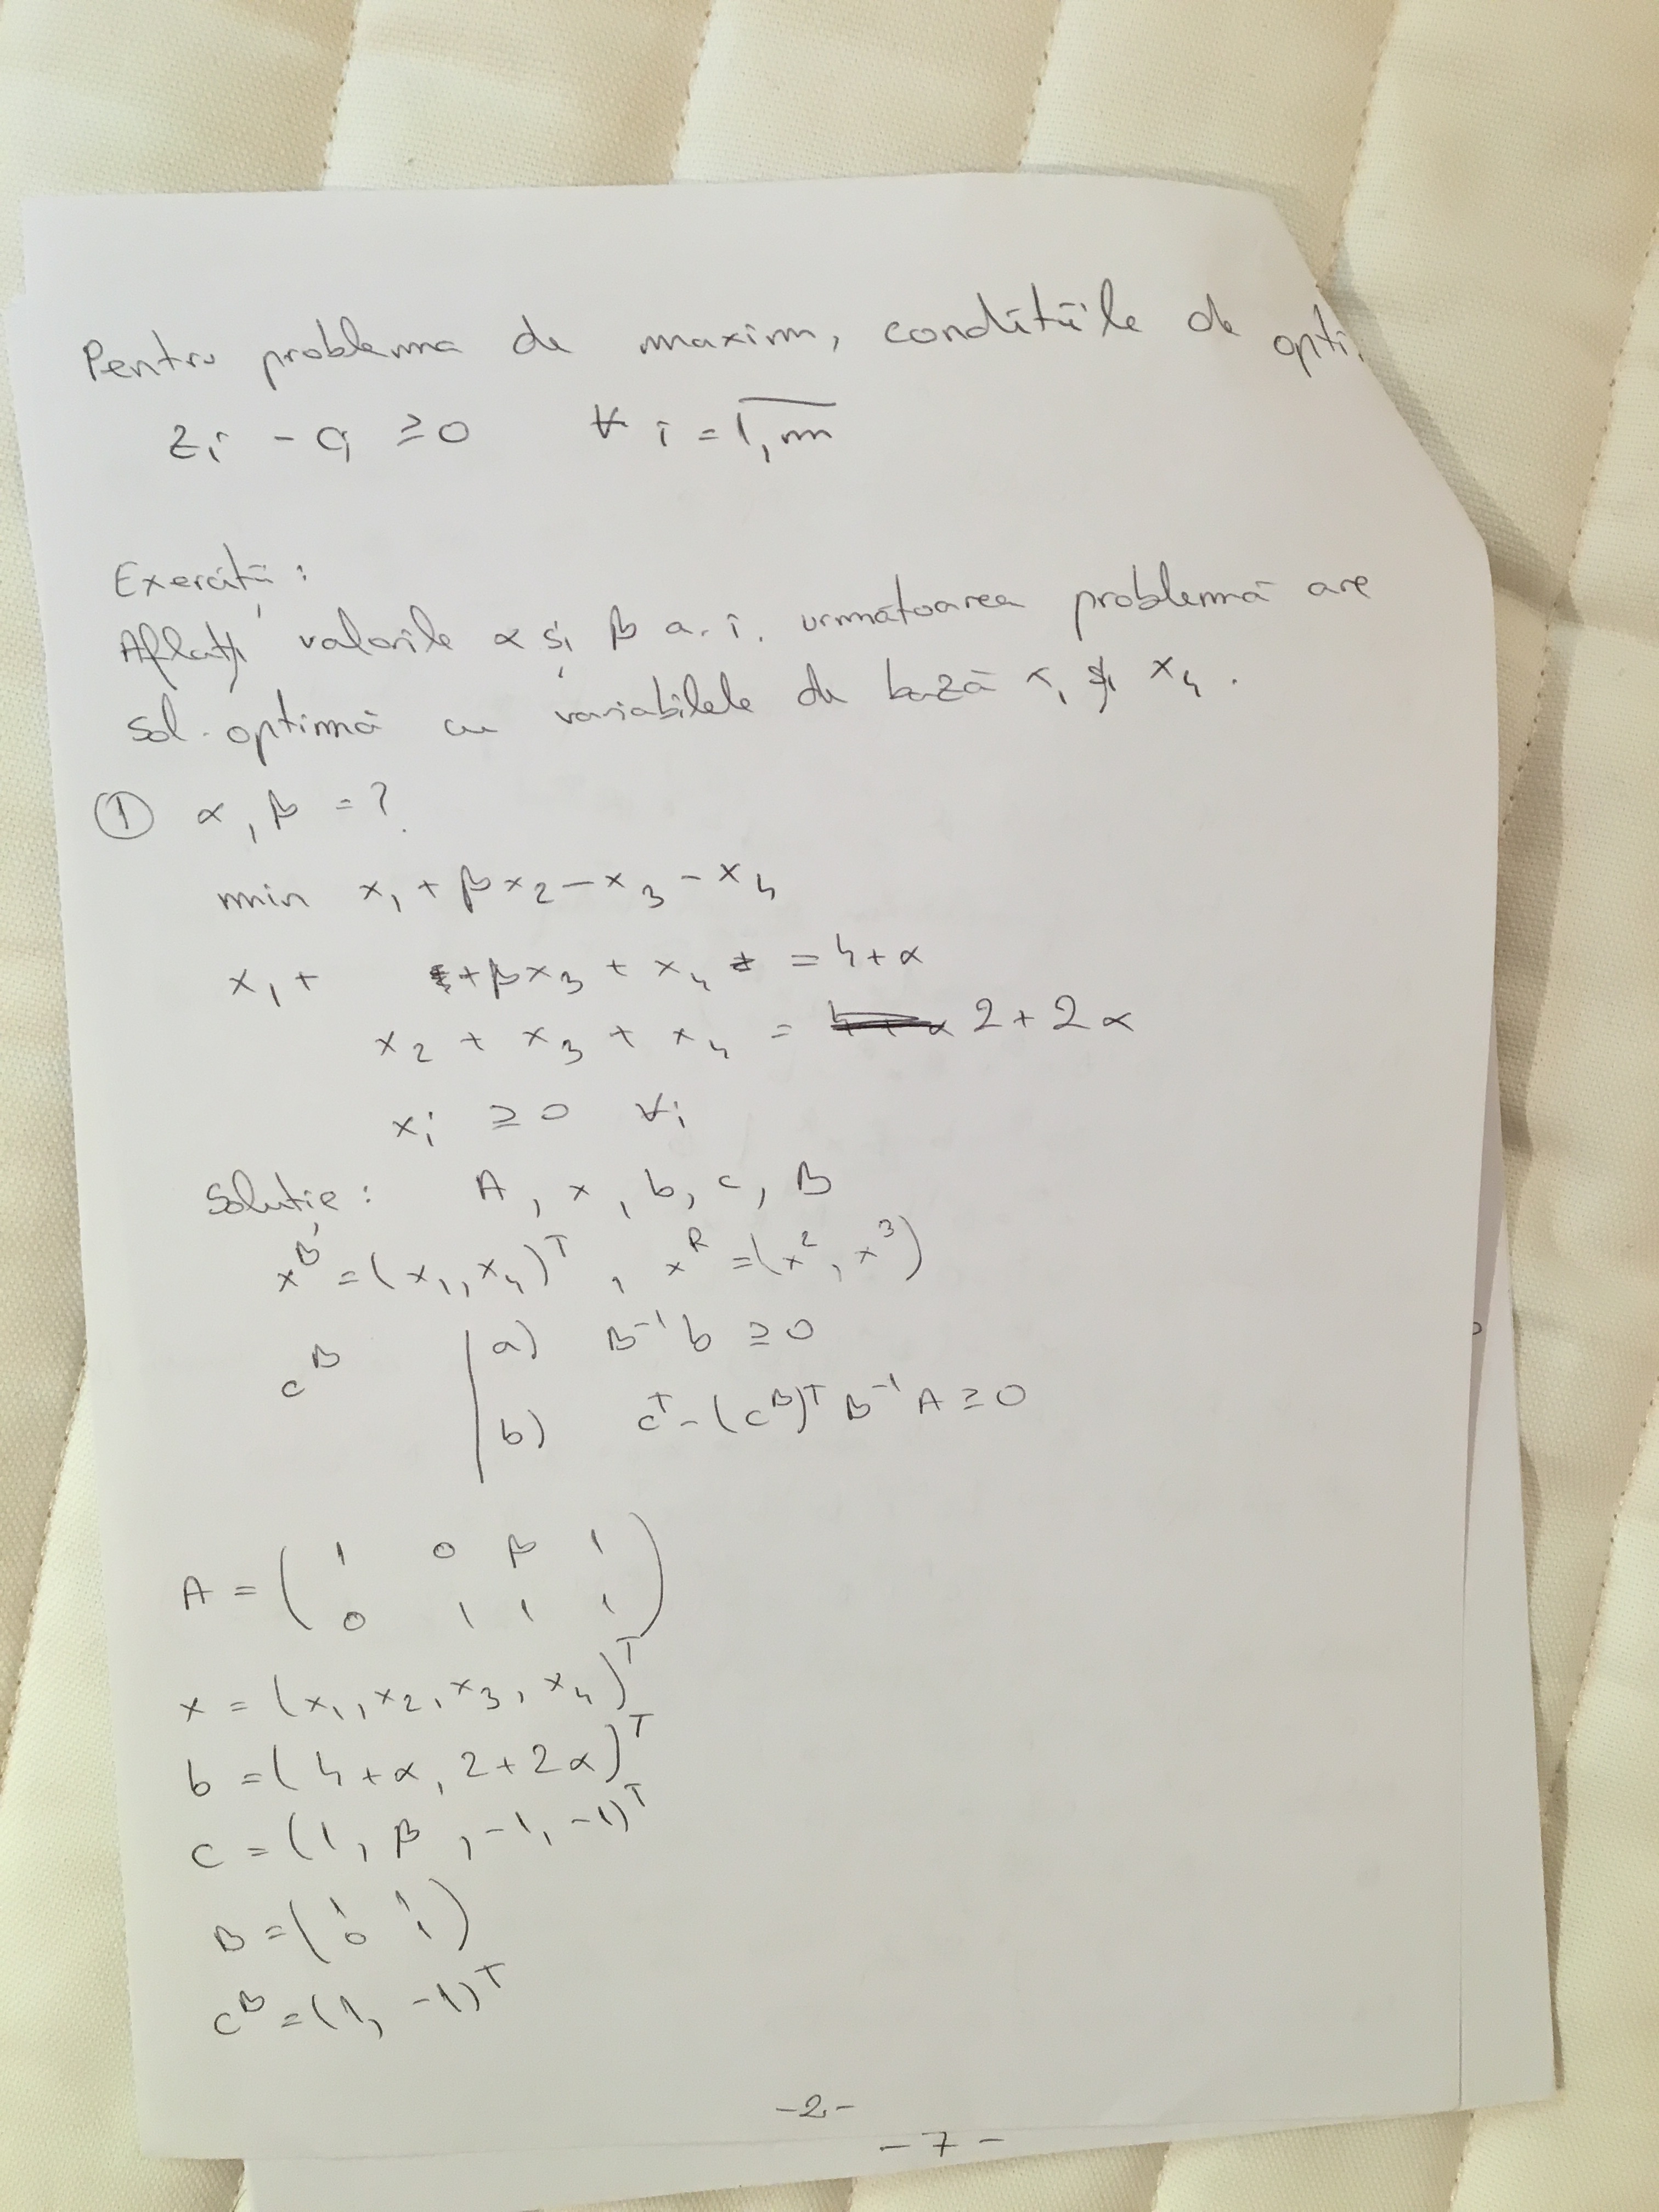 Pentru problema de maxim, condițiile de opti
zi - ci ≥0 ∀ i = 1,m
Exerciții:
Aflați valorile α și β a.î. următoarea problemă are
sol. optimă cu variabilele de bază x1 și x4.
① α, β = ?
min x1 + βx2 - x3 - x4
x1 + + βx3 + x4 = 4+α
x2 + x3 + x4 = 2+2α
xi ≥ 0 ∀i
Soluție: A, x, b, c, B
x^B = (x1, x4)^T, x^R = (x^2, x^3)
c^B | a) B^-1 b ≥ 0
b) c^T - (c^B)^T B^-1 A ≥ 0
A = ( 1 0 β 1
0 1 1 1 )
x = (x1, x2, x3, x4)^T
b = (4+α, 2+2α)^T
c = (1, β, -1, -1)^T
B = ( 1 1
0 1 )
c^B = (1, -1)^T
-2-
-7-